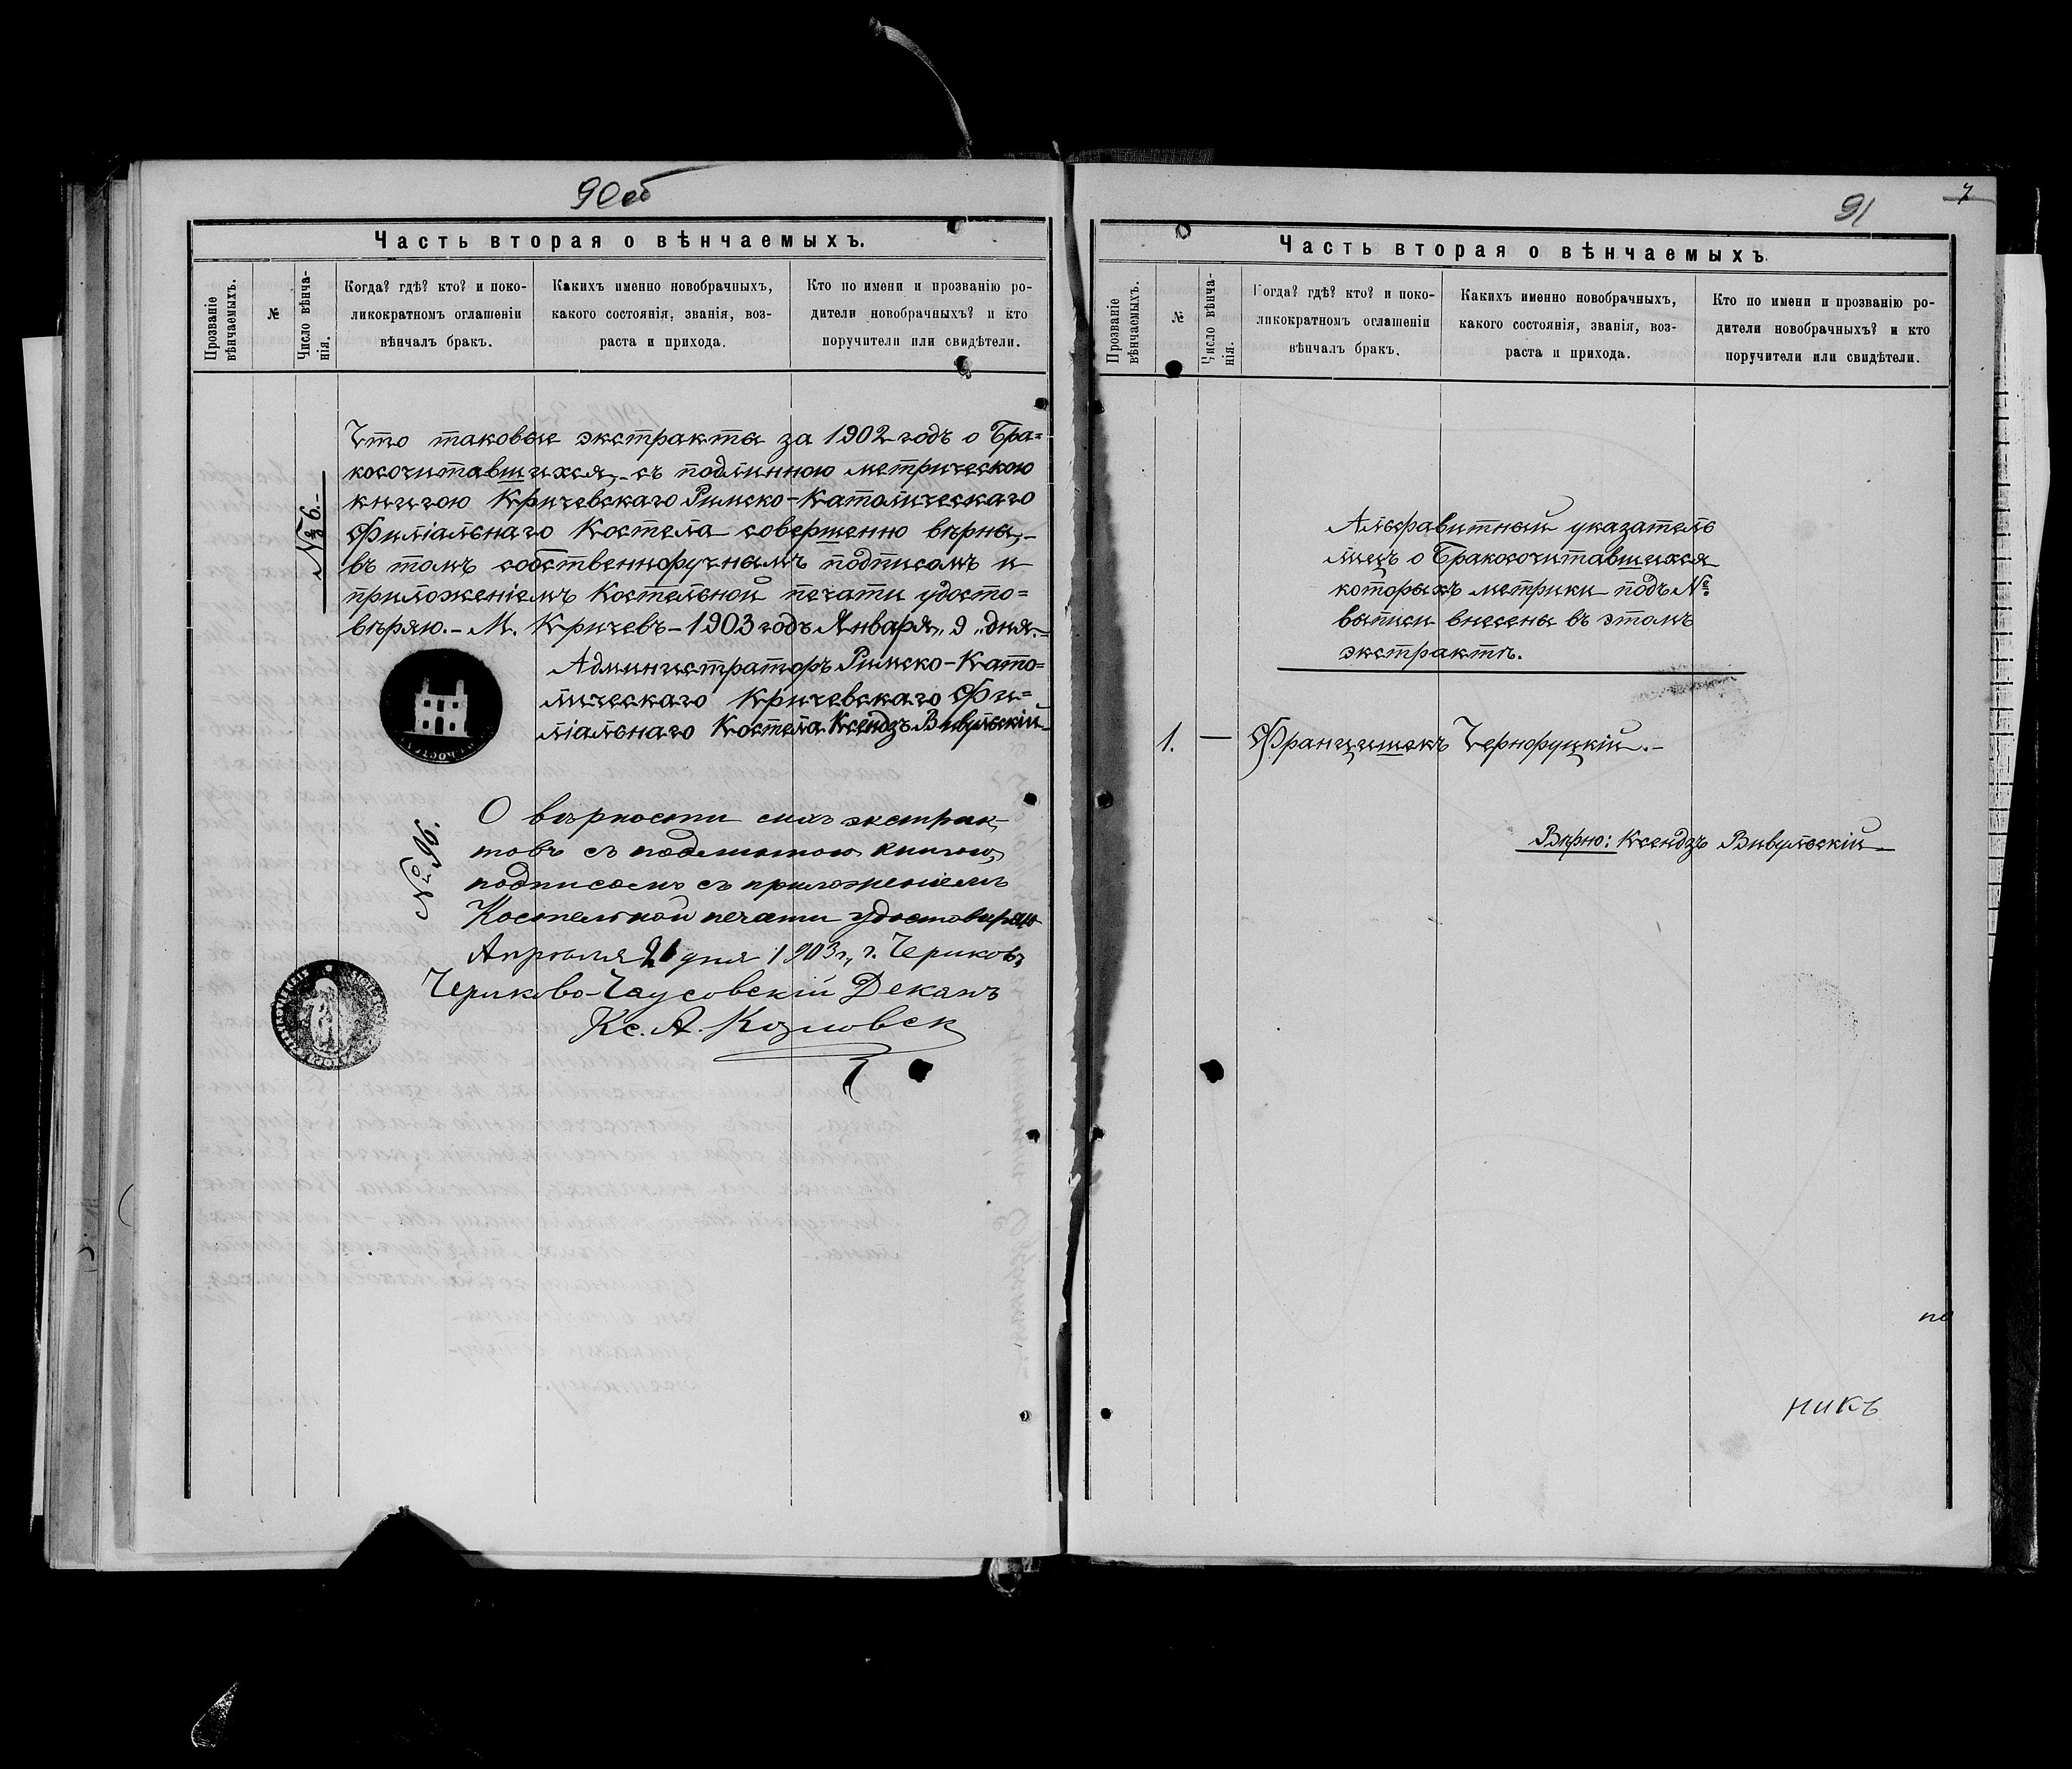 90об
Часть вторая о вѣнчаемыхъ.
Прозваніе
вѣнчаемыхъ.
№
Число вѣнча-
нія.
Когда? гдѣ? кто? и поко-
ликократномъ оглашеніи
вѣнчалъ бракъ.
Какихъ именно новобрачныхъ,
какого состоянія, званія, воз-
раста и прихода.
Кто по имени и прозванію ро-
дители новобрачныхъ? и кто
поручители или свидѣтели.
№ 6.-
Что таковые экстракты за 1902 годъ о Бра=
косочитавшихся,- съ подлинною метрическою
книгою Кричевскаго Римско-Католическаго
Филіальнаго Костела совершенно вѣрны,-
въ томъ собственноручнымъ подписомъ и
приложеніемъ Костельной печати удосто=
вѣряю.- М. Кричевъ - 1903 годъ Января „9„ дня.-
Администраторъ Римско-Като=
лическаго Кричевскаго Фи=
ліальнаго Костела Ксендзъ Вивульскій
№ 96.
О вѣрности сихъ экстрак-
товъ съ подлинною книгою,
подписомъ съ приложеніемъ
Костельной печати удостовѣряю
Апрѣля 21 дня 1903 г., г. Чериковъ
Чериково-Чаусовскій Деканъ
Кс. А. Козловск
91
7
Часть вторая о вѣнчаемыхъ
Прозваніе
вѣнчаемыхъ.
№
Число вѣнча-
нія.
Когда? гдѣ? кто? и поко-
ликократномъ оглашеніи
вѣнчалъ бракъ.
Какихъ именно новобрачныхъ,
какого состоянія, званія, воз-
раста и прихода.
Кто по имени и прозванію ро-
дители новобрачныхъ? и кто
поручители или свидѣтели.
Алфавитный указатель
лицъ о Бракосочитавшихся
которыхъ метрики подъ №
выписи внесены въ этомъ
экстрактѣ.
1. — Францишекъ Чернруцкій.-
Вѣрно: Ксендзъ Вивульскій
по
никъ